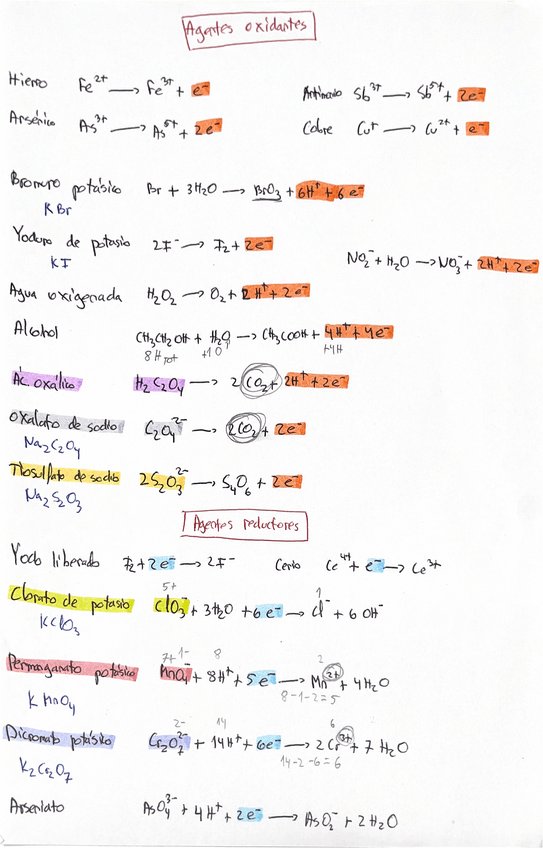 Agentes oxidantes
Hierro Fe²⁺ → Fe³⁺ + e⁻ Antimonio Sb³⁺ → Sb⁵⁺ + 2e⁻
Arsénico As³⁺ → As⁵⁺ + 2e⁻ Cobre Cu⁺ → Cu²⁺ + e⁻
Bromuro potásico Br + 3H₂O → BrO₃ + 6H⁺ + 6e⁻
KBr
Yoduro de potasio 2I⁻ → I₂ + 2e⁻
KI NO₂⁻ + H₂O → NO₃⁻ + 2H⁺ + 2e⁻
Agua oxigenada H₂O₂ → O₂ + 2H⁺ + 2e⁻
Alcohol CH₃CH₂OH + H₂O → CH₃COOH + 4H⁺ + 4e⁻
8H TOT +1O +4H
Ác. oxálico H₂C₂O₄ → 2CO₂ + 2H⁺ + 2e⁻
Oxalato de sodio C₂O₄²⁻ → 2CO₂ + 2e⁻
Na₂C₂O₄
Tiosulfato de sodio 2S₂O₃²⁻ → S₄O₆ + 2e⁻
Na₂S₂O₃
Agentes reductores
Yodo liberado I₂ + 2e⁻ → 2I⁻ Cerio Ce⁴⁺ + e⁻ → Ce³⁺
5+ 1
Clorato de potasio ClO₃⁻ + 3H₂O + 6e⁻ → Cl⁻ + 6OH⁻
KClO₃
7+ 1- 8 2
Permanganato potásico MnO₄⁻ + 8H⁺ + 5e⁻ → Mn²⁺ + 4H₂O
KMnO₄ 8-1-2=5
2- 14 6
Dicromato potásico Cr₂O₇²⁻ + 14H⁺ + 6e⁻ → 2Cr³⁺ + 7H₂O
K₂Cr₂O₇ 14-2-6=6
Arseniato AsO₄³⁻ + 4H⁺ + 2e⁻ → AsO₂⁻ + 2H₂O